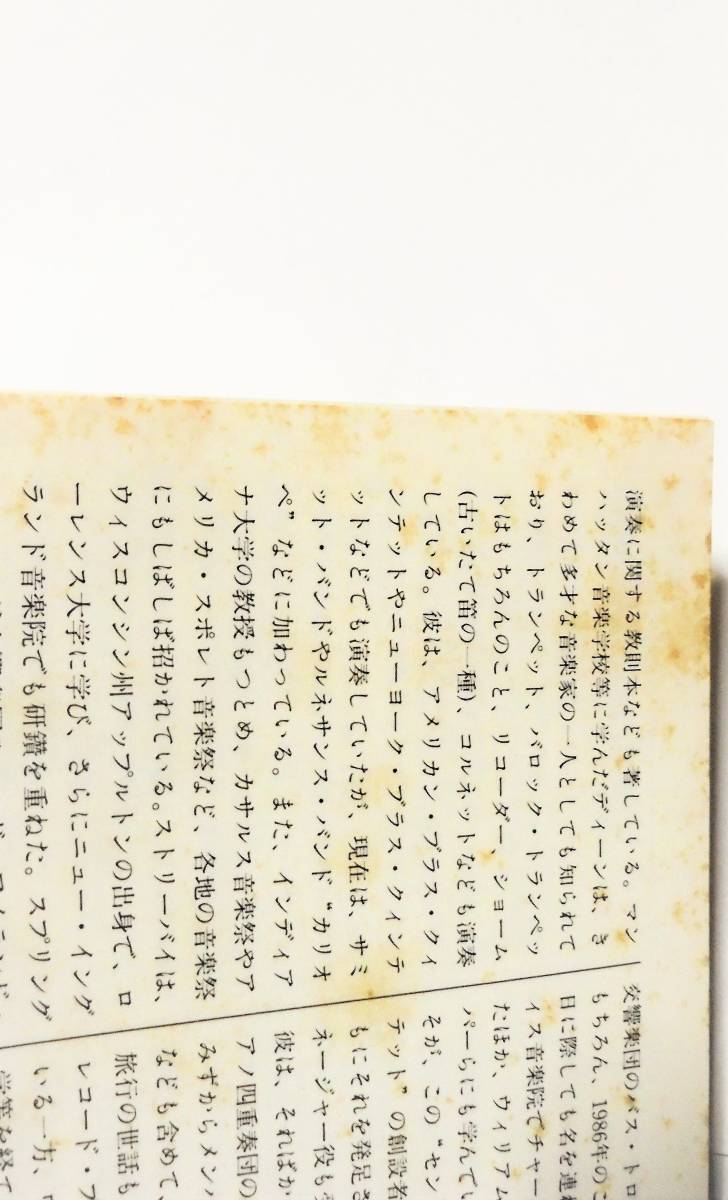 演奏に関する教則本なども著している。マン
ハッタン音楽学校等に学んだディーンは、き
わめて多才な音楽家の一人としても知られて
おり、トランペット、バロック・トランペッ
トはもちろんのこと、リコーダー、ショーム
(古いたて笛の一種)、コルネットなども演奏
している。彼は、アメリカン・ブラス・クィ
ンテットやニューヨーク・ブラス・クィンテ
ットなどでも演奏していたが、現在は、サミ
ット・バンドやルネサンス・バンド“カリオ
ペ”などに加わっている。また、インディア
ナ大学の教授もつとめ、カサルス音楽祭やア
メリカ・スポレト音楽祭など、各地の音楽祭
にもしばしば招かれている。ストリーバイは、
ウィスコンシン州アップルトンの出身で、ロ
ーレンス大学に学び、さらにニュー・イング
ランド音楽院でも研鑽を重ねた。スプリング
交響楽団のバス・トロ
もちろん、1986年の
日に際しても名を連
イス音楽院でチャー
たほか、ウィリアム
パーらにも学んでい
そが、この“セン
テット”の創設者
もにそれを発足さ
ネージャー役も
彼は、そればか
アノ四重奏団の
みずからメン
なども含めて、
旅行の世話も
レコード・フ
いる一方、
学等を経て